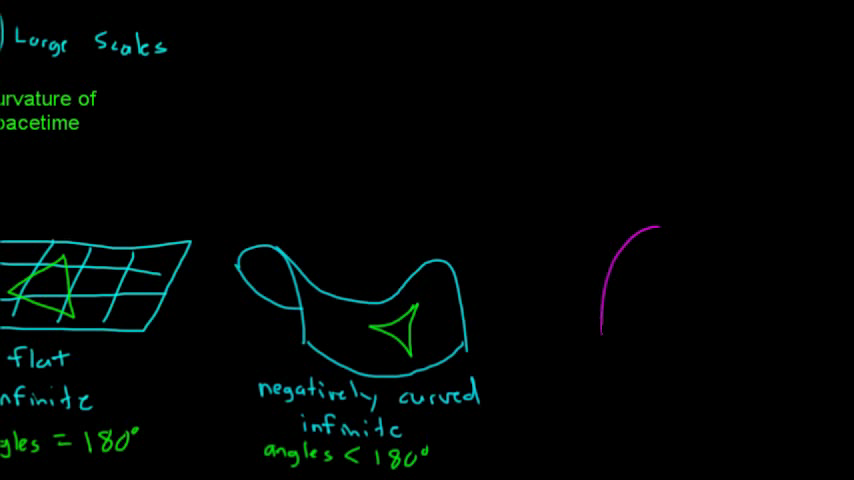 ) Large Scales
urvature of
pacetime
flat
nfinite
gles = 180°
negatively curved
infinite
angles < 180°